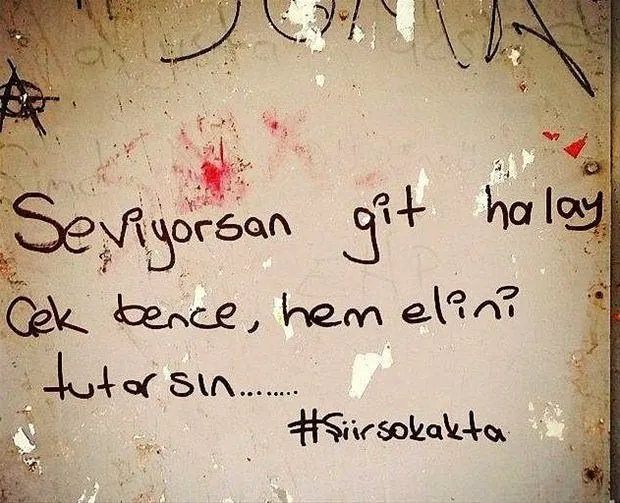 Seviyorsan git halay
Çek bence, hem elini
tutarsın........
#şiirsokakta